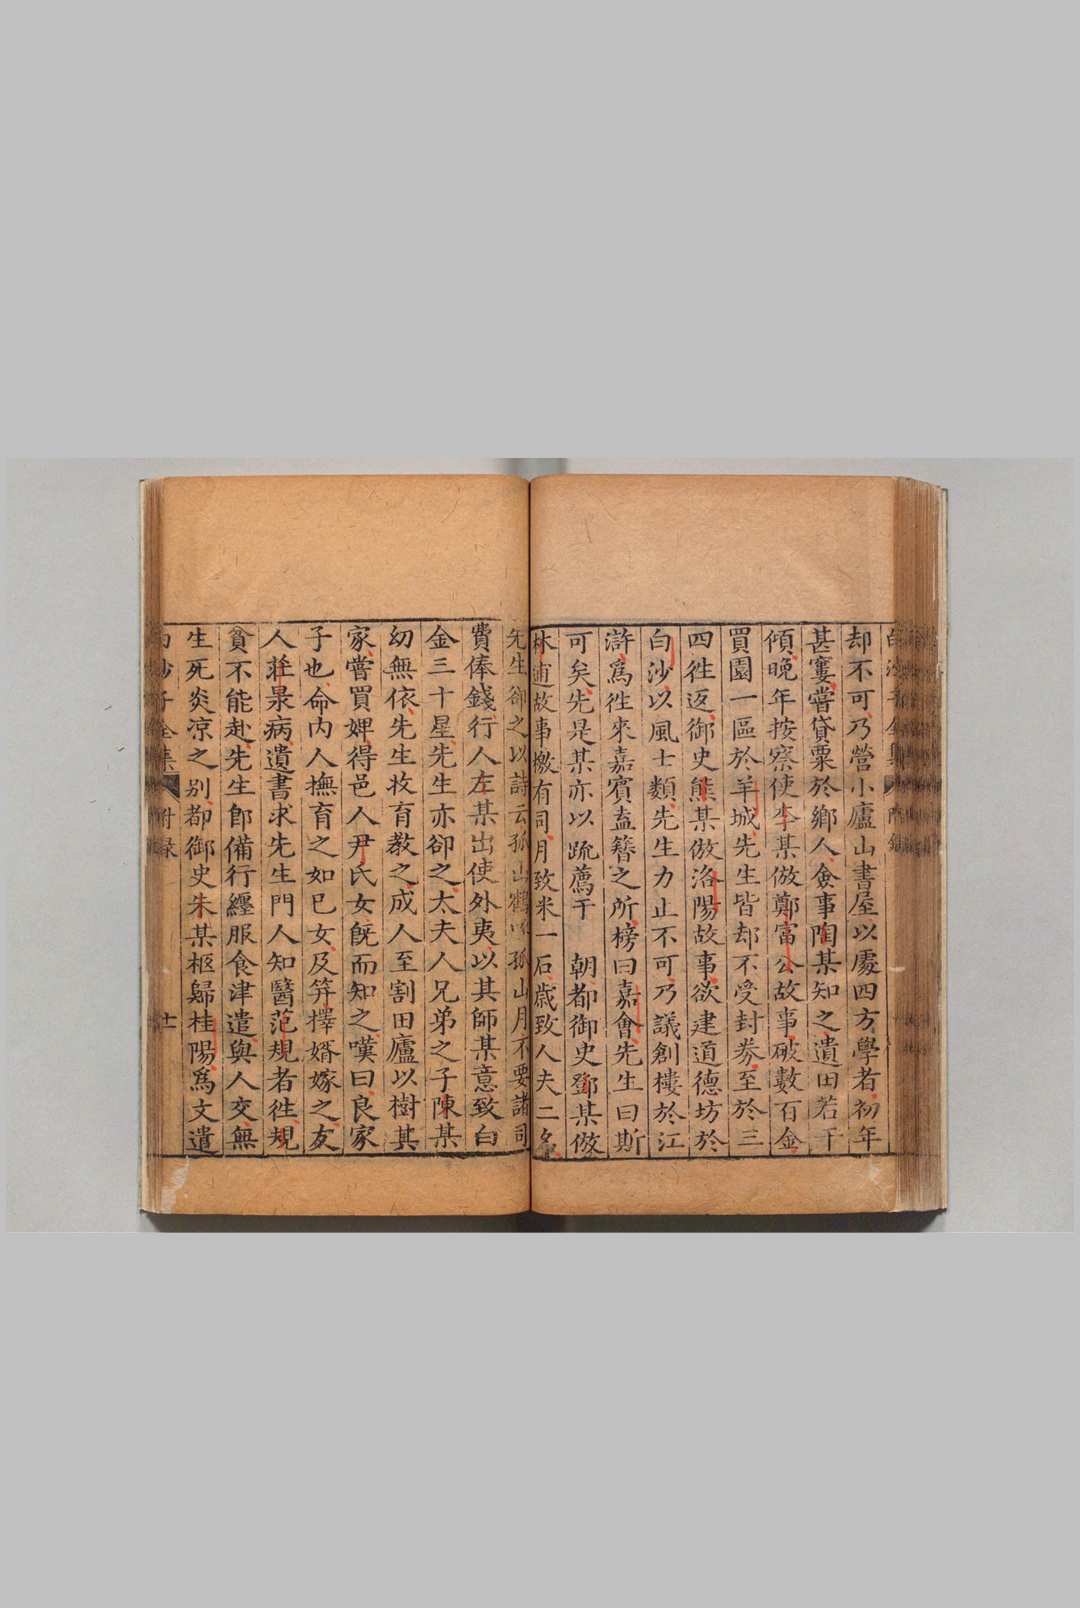 却不可乃營小廬山書屋以處四方學者初年
甚窶嘗貸粟於鄉人僉事陶某知之遺田若干
頃晚年按察使李某倣鄭富公故事破數百金
買園一區於羊城先生皆却不受封券至於三
四徃返御史熊某倣洛陽故事欲建道德坊於
白沙以風士類先生力止不可乃議創樓於江
滸爲徃來嘉賓盍簪之所榜曰嘉會先生曰斯
可矣先是某亦以疏薦于 朝都御史鄧某倣
林逋故事檄有司月致米一石歲致人夫二名
先生卻之以詩云孤山鶴 孤山月不要諸司
費俸錢行人左某出使外夷以其師某意致白
金三十星先生亦卻之太夫人兄弟之子陳某
幼無依先生收育教之成人至割田廬以樹其
家嘗買婢得邑人尹氏女旣而知之嘆曰良家
子也命内人撫育之如巳女及笄擇婿嫁之友
人莊杲病遺書求先生門人知醫范規者徃規
貧不能赴先生卽備行纒服食津遣與人交無
生死炎凉之别都御史朱某柩歸桂陽爲文遣
白沙子全集 附录 十